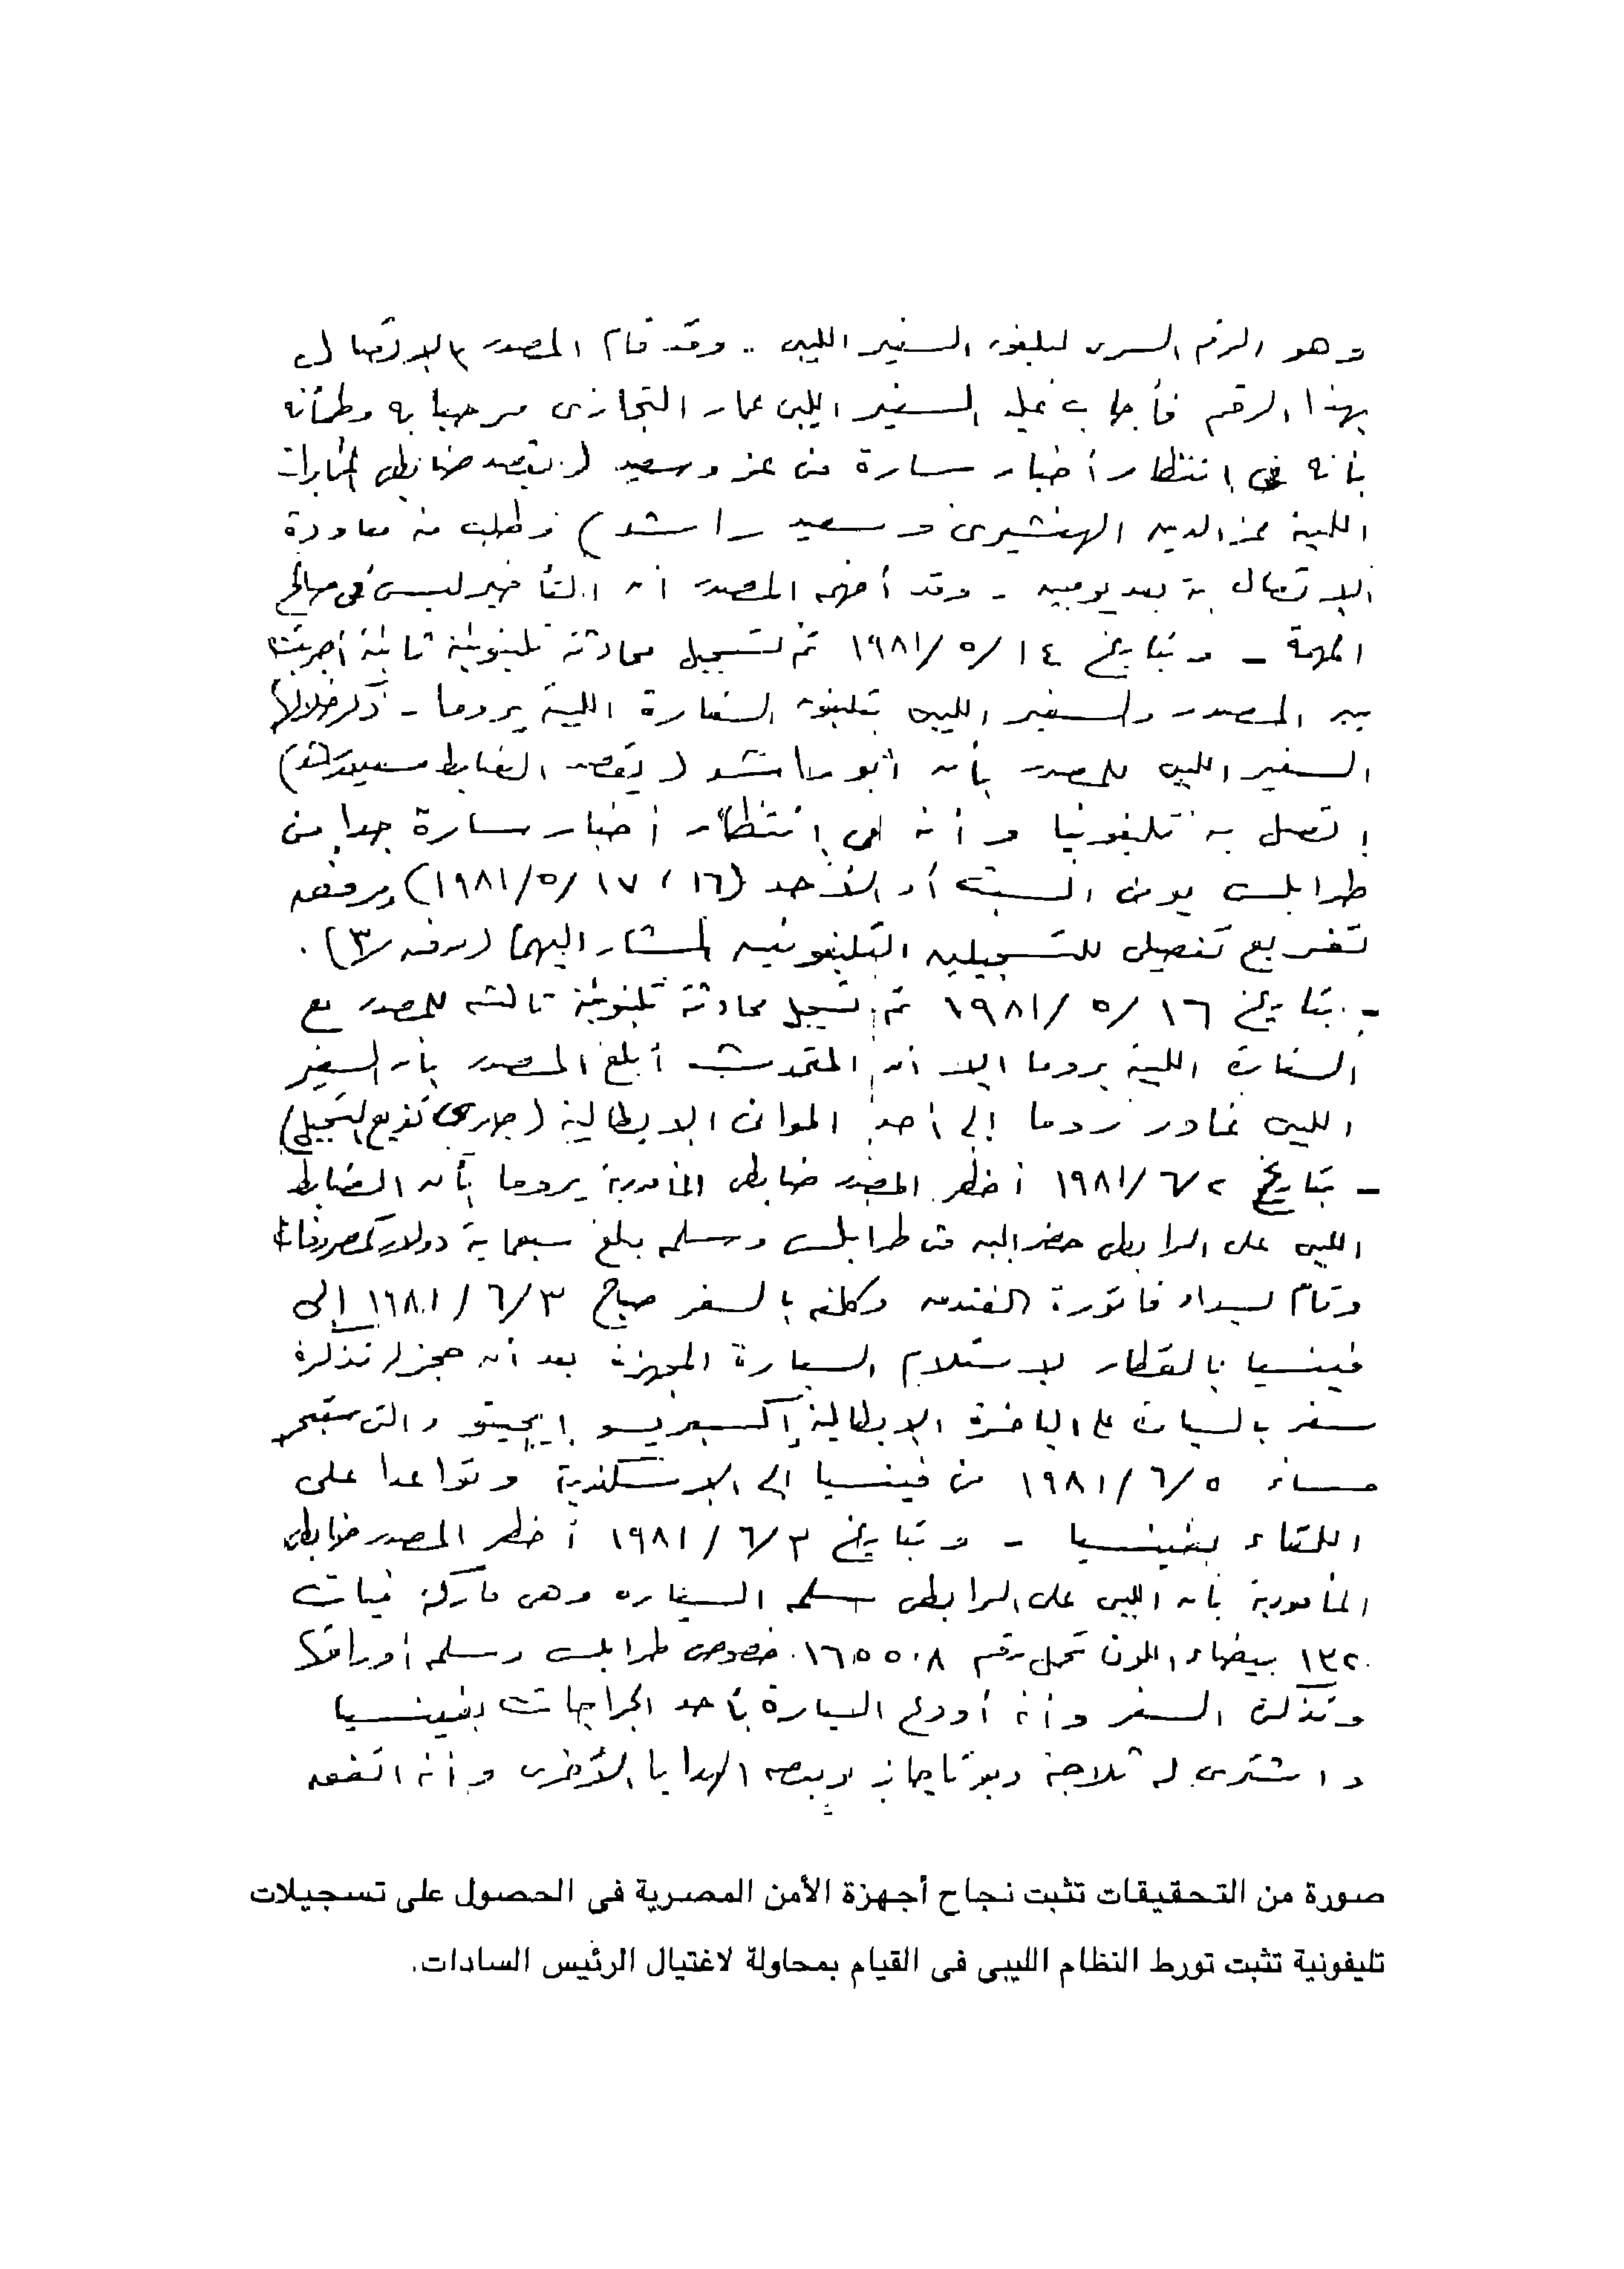 وهو الرقم السرى لتليفون السفير الليبى .. وقد قام المصدر بالاتصال
بهذا الرقم فأجاب عليه السفير الليبى عمار التجازى مرحبا به وطمأنه
بأنه فى انتظار أخبار سارة من عز وسعيد ( يقصد ضابطى المخابرات
الليبية عز الدين الهنشيرى وسعيد راشد ) وطلب منه معاودة
الاتصال به بعد يومين - وقد أفهمه المصدر أن التأخير ليس فى صالح
المهمة - وبتاريخ ١٤ /٥ /١٩٨١ تم تسجيل محادثة تليفونية ثانية أجريت
بين المصدر والسفير الليبى بتليفون السفارة الليبية بروما - ذكر خلالها
السفير الليبى للمصدر بأن أبو راشد ( يقصد الضابط سعيد راشد )
إتصل به تليفونيا وأنه فى إنتظار أخبار سارة جدا من
طرابلس يومى السبت أو الأحد (١٦ ، ١٧ /٥ /١٩٨١) ومرفق
تفريغ تفصيلى للتسجيلين التليفونيين المشار اليهما (مرفق ٣) .
- بتاريخ ١٦ /٥ /١٩٨١ تم تسجيل محادثة تليفونية ثالثة للمصدر مع
السفارة الليبية بروما إلا أن المتحدث أبلغ المصدر بأن السفير
الليبى غادر روما إلى أحد الموانى الايطالية (جارى تفريغ التسجيل)
- بتاريخ ٢ /٦ /١٩٨١ أخطر المصدر ضابطى المأمورية بروما بأن الضابط
الليبى على الرابطى حضر اليه من طرابلس وسلمه مبلغ سبعماية دولار كمصروفات
وقام بسداد فاتورة الفندق وكلفه بالسفر صباح ٣ /٦ /١٩٨١ إلى
فينسيا بالقطار لاستلام السيارة المجهزة بعد أن حجز له تذكرة
سفر بالسيارة على الباخرة الايطالية إكسبريسو إيجيتو والتى ستبحر
مساء ٥ /٦ /١٩٨١ من فينسيا إلى الاسكندرية وتواعدا على
اللقاء بفينسيا - وبتاريخ ٣ /٦ /١٩٨١ أخطر المصدر ضابطى
المأمورية بأن الليبى على الرابطى سلمه السيارة وهى ماركة فيات
١٣٢ بيضاء اللون تحمل رقم ١٦٥٥٠٨ خصوصى طرابلس وسلمه أوراقها
وتذكرة السفر وأنه أودع السيارة بأحد الجراجات بفينسيا
واشترى له ثلاجة وبوتاجاز وبعض الهدايا الأخرى وأنه اتفق
صورة من التحقيقات تثبت نجاح أجهزة الأمن المصرية فى الحصول على تسجيلات
تليفونية تثبت تورط النظام الليبى فى القيام بمحاولة لاغتيال الرئيس السادات.